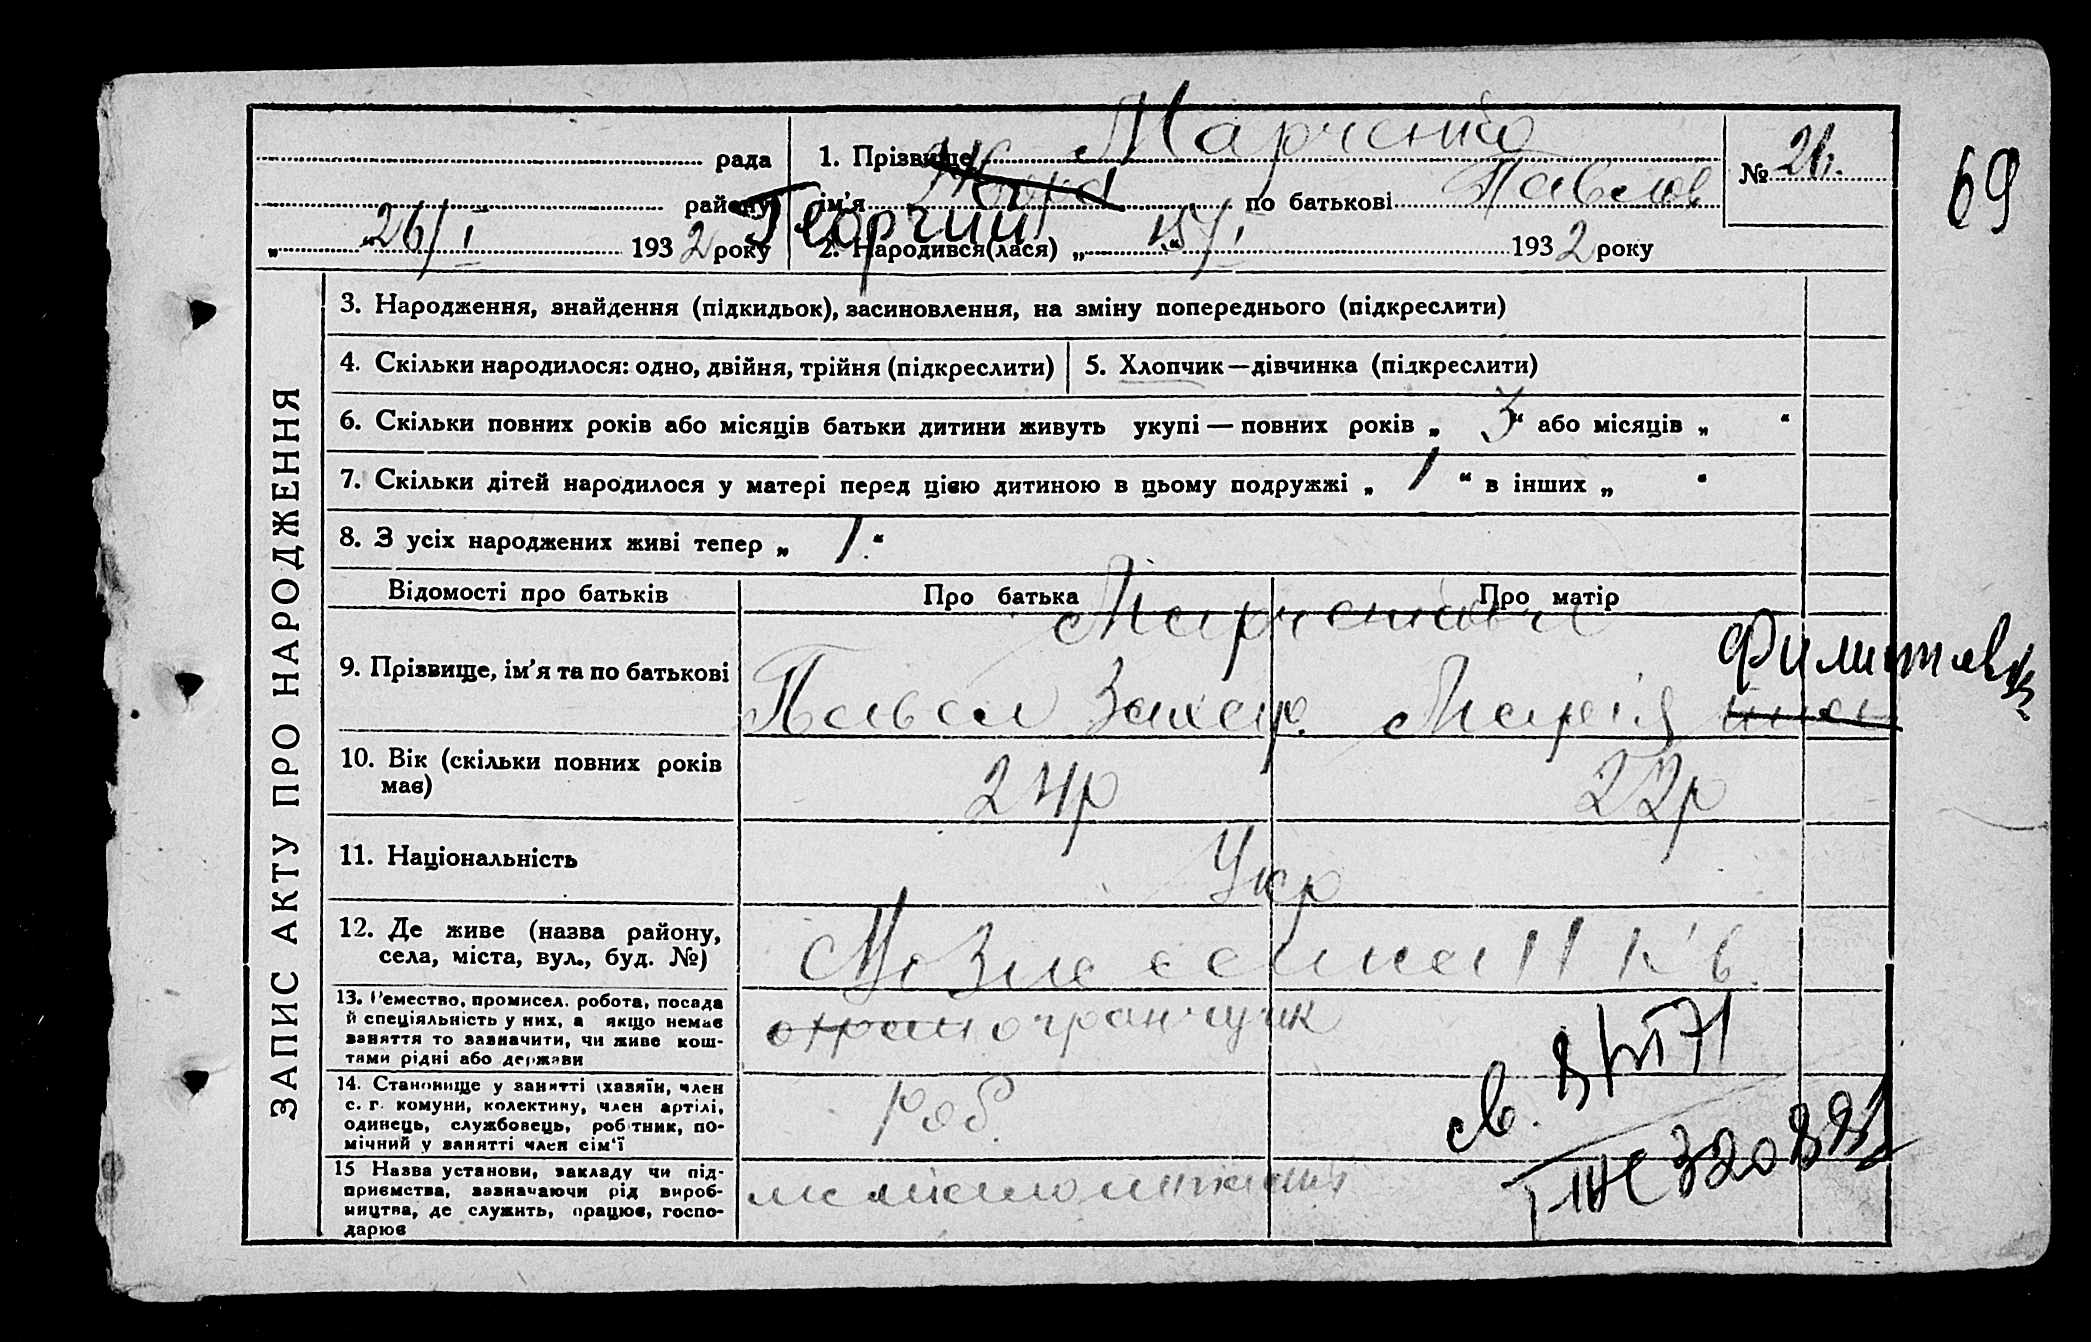 рада
району
„ 26/I “ 1932 року
1. Прізвище Марченко
ім'я Жора Георгий по батькові Павлов
2. Народився(лася) „ 15/I “ 1932 року
№ 26.
69
ЗАПИС АКТУ ПРО НАРОДЖЕННЯ
3. Народження, знайдення (підкидьок), засиновлення, на зміну попереднього (підкреслити)
4. Скільки народилося: одно, двійня, трійня (підкреслити)
5. Хлопчик—дівчинка (підкреслити)
6. Скільки повних років або місяців батьки дитини живуть укупі — повних років „ 3 “ або місяців „ “
7. Скільки дітей народилося у матері перед цією дитиною в цьому подружжі „ 1 “ в інших „ “
8. З усіх народжених живі тепер „ 1. “
Відомості про батьків
Про батька
Про матір
9. Прізвище, ім'я та по батькові
Марченкови
Павел Захар.
Мария
10. Вік (скільки повних років має)
24р
22р
11. Національність
Укр
12. Де живе (назва району,
села, міста, вул., буд. №)
11 к 6
13. Ремество, промисел, робота, посада
й спеціяльність у них, а якщо немає
заняття то зазначити, чи живе кош-
тами рідні або держави
14. Становище у занятті (хазяїн, член
с. г. комуни, колективу, член артілі,
одинець, службовець, робітник, по-
мічний у занятті член сім'ї
Роб.
15 Назва установи, закладу чи під-
приємства, зазначаючи рід вироб-
ництва, де служить, працює, госпо-
дарює
св.